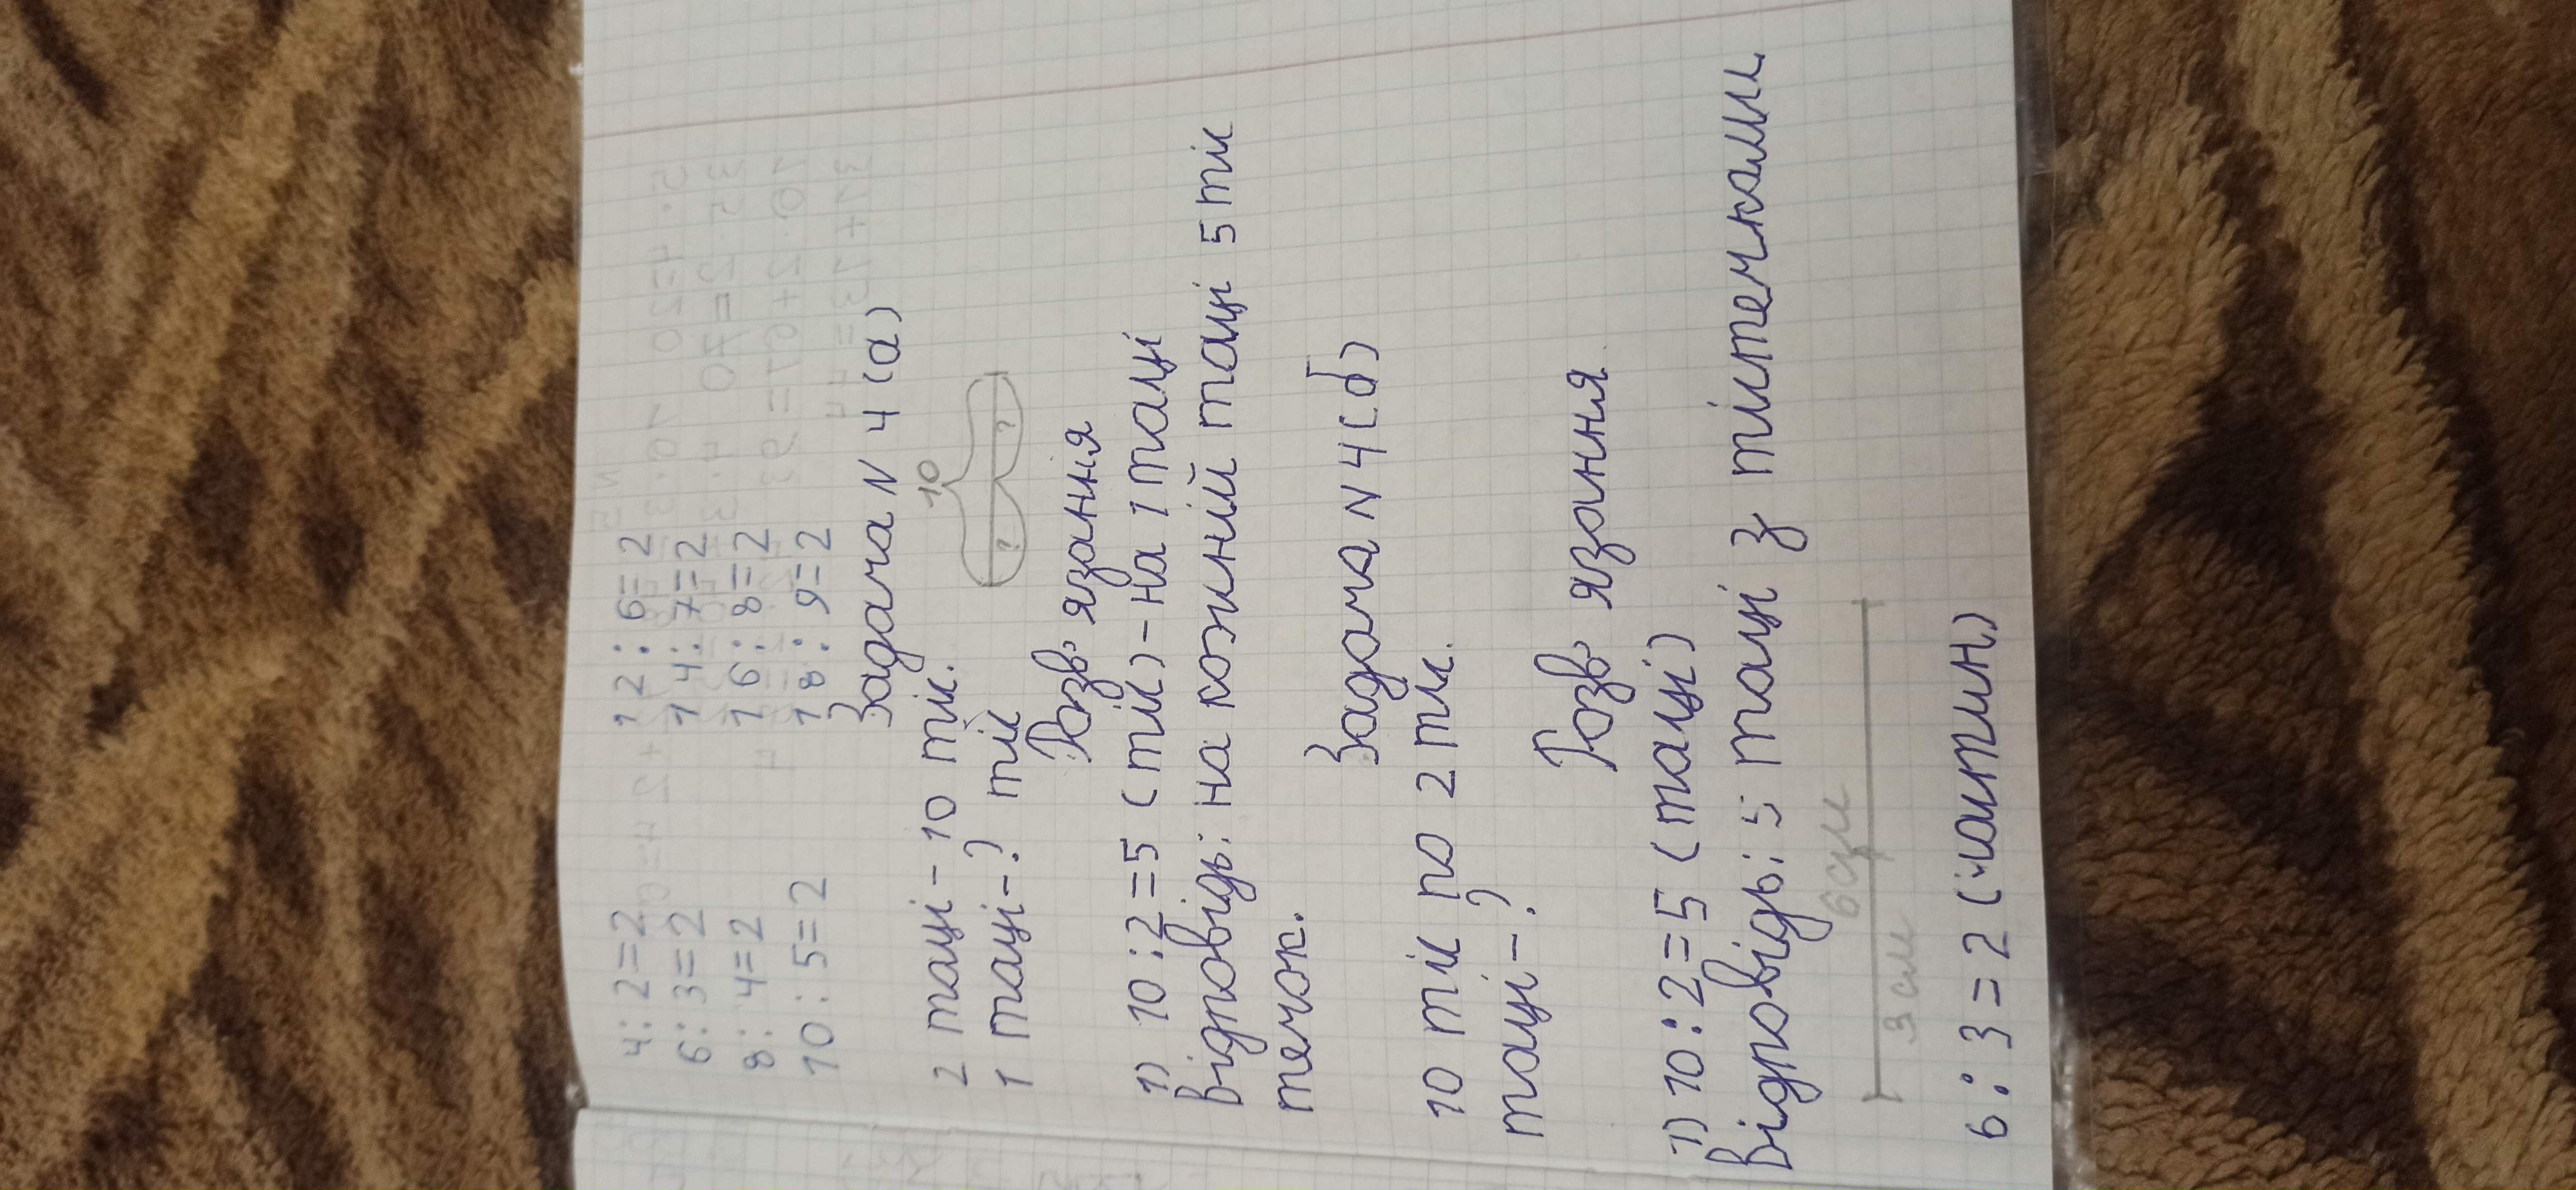 4:2=2 12:6=2
6:3=2 14:7=2
8:4=2 16:8=2
10:5=2 18:9=2
Задача N 4 (а)
2 таці - 10 тіс.
1 таці - ? тіс
10
? ?
Розв'язання
1) 10:2=5 (тіс) - на 1 таці
Відповідь: на кожній таці 5 тіс
течок.
Задача N 4 (б)
10 тіс по 2 тіс.
таці - ?
Розв'язання
1) 10:2=5 (таці)
Відповідь: 5 таці з тістечками.
6см
3 см
6:3=2 (частин)